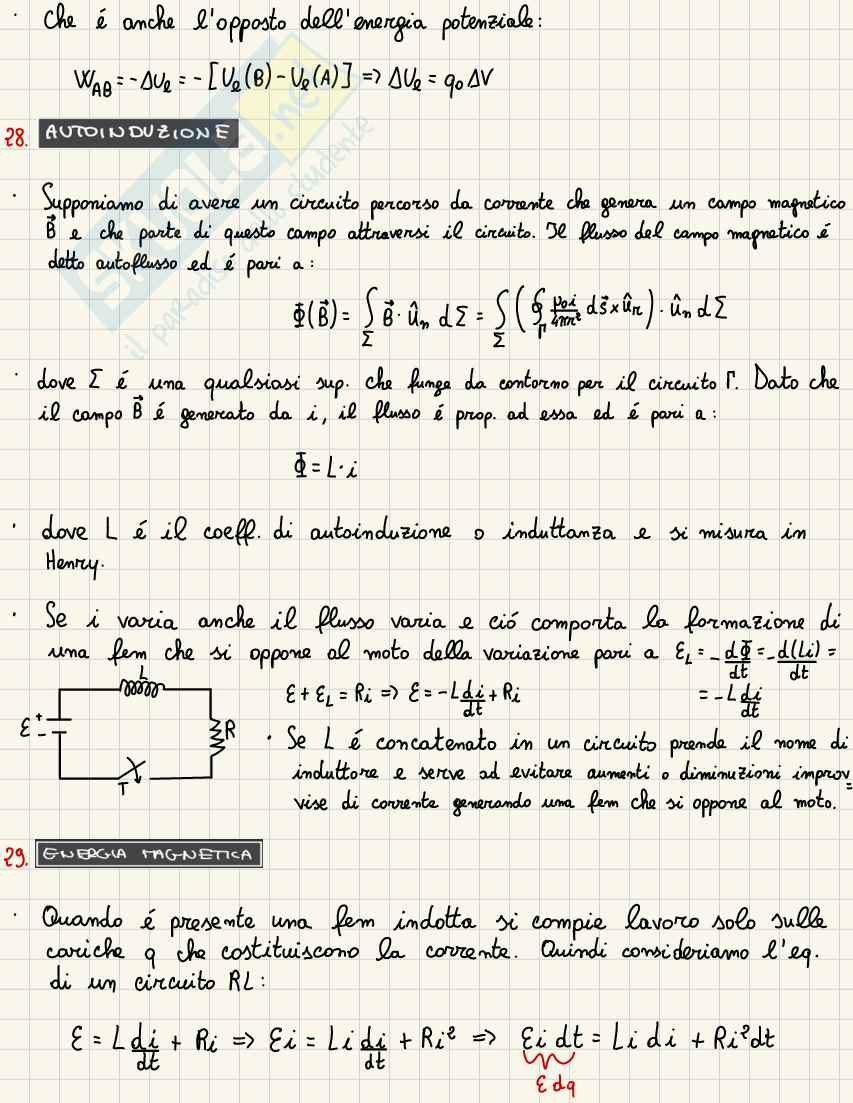 · Che é anche l'opposto dell'energia potenziale:
W_AB = -ΔU_e = -[U_e(B) - U_e(A)] => ΔU_e = q₀ΔV
28. AUTOINDUZIONE
· Supponiamo di avere un circuito percorso da corrente che genera un campo magnetico
B⃗ e che parte di questo campo attraversi il circuito. Il flusso del campo magnetico é
detto autoflusso ed é pari a:
Φ(B⃗) = ∫_Σ B⃗ · û_n dΣ = ∫_Σ (∮_Γ μ₀i/4πr² ds⃗ x û_r) · û_n dΣ
· dove Σ é una qualsiasi sup. che funge da contorno per il circuito Γ. Dato che
il campo B⃗ é generato da i, il flusso é prop. ad essa ed é pari a:
Φ = L·i
· dove L é il coeff. di autoinduzione o induttanza e si misura in
Henry.
· Se i varia anche il flusso varia e ció comporta la formazione di
una fem che si oppone al moto della variazione pari a ε_L = -dΦ/dt = -d(Li)/dt =
= -L di/dt
ε + ε_L = Ri => ε = -L di/dt + Ri
L
ε
+
-
R
T
· Se L é concatenato in un circuito prende il nome di
induttore e serve ad evitare aumenti o diminuzioni improv=
vise di corrente generando una fem che si oppone al moto.
29. ENERGIA MAGNETICA
· Quando é presente una fem indotta si compie lavoro solo sulle
cariche q che costituiscono la corrente. Quindi consideriamo l'eq.
di un circuito RL:
ε = L di/dt + Ri => εi = Li di/dt + Ri² => εi dt = Li di + Ri²dt
ε dq
SKUOLA.net
il paradiso dello studente